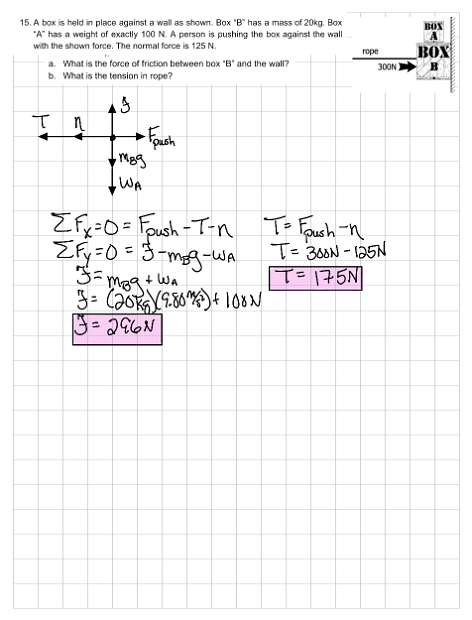 15. A box is held in place against a wall as shown. Box "B" has a mass of 20kg. Box
"A" has a weight of exactly 100 N. A person is pushing the box against the wall
with the shown force. The normal force is 125 N.
a. What is the force of friction between box "B" and the wall?
b. What is the tension in rope?
BOX
A
rope
BOX
B
300N
T n f Fpush
mBg
WA
ΣFx = 0 = Fpush - T - n
ΣFy = 0 = f - mBg - WA
f = mBg + WA
f = (20kg)(9.80 m/s²) + 100N
f = 296N
T = Fpush - n
T = 300N - 125N
T = 175N